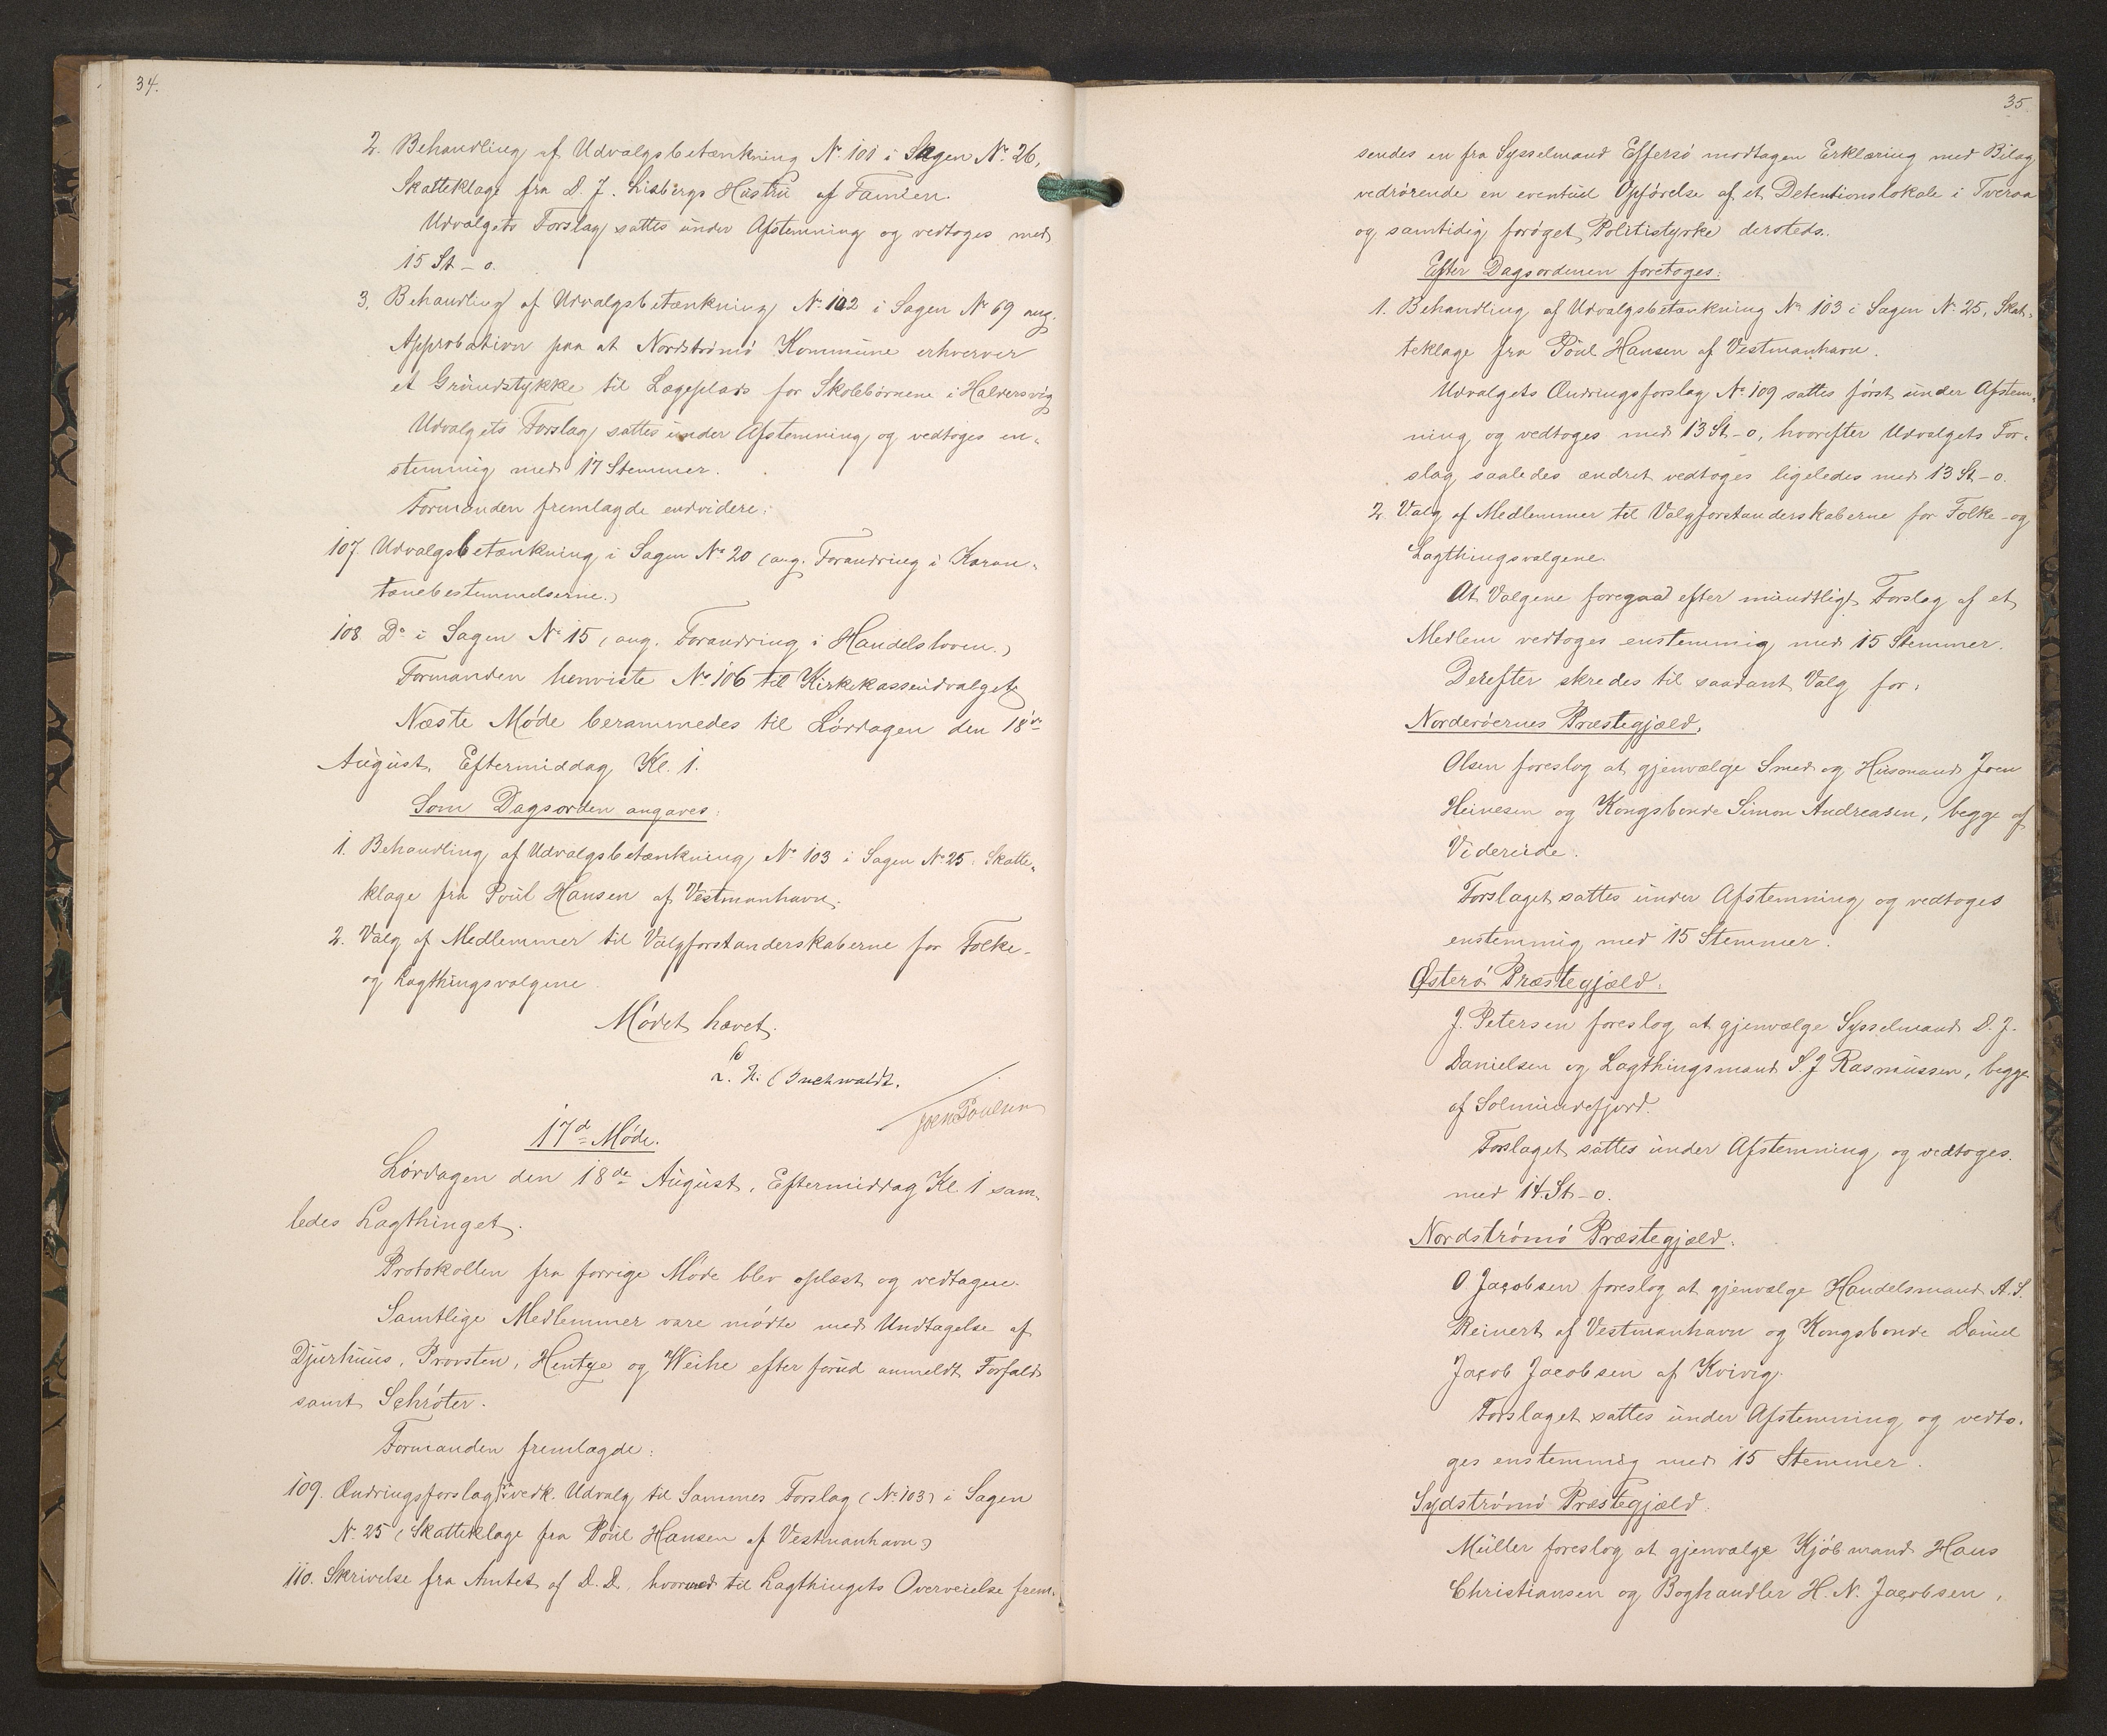 34.
2. Behandling af Udvalgsbetænkning No 101 i Sagen No 26,
Skatteklage fra D. J. Lisbergs Hustru af Famien.
Udvalgets Forslag sattes under Afstemning og vedtoges med
15 St – 0.
3. Behandling af Udvalgsbetænkning No 102 i Sagen No 69 ang.
Approbation paa at Nordstrømø Kommune erhverver
et Grundstykke til Legeplads for Skolebørnene i Haldersvig
Udvalgets Forslag sattes under Afstemning og vedtoges en-
stemmig med 17 Stemmer.
Formanden fremlagde endvidere:
107. Udvalgsbetænkning i Sagen No 20 (ang. Forandring i Karan-
tænebestemmelserne.)
108 Do i Sagen No 15 (ang. Forandring i Handelsloven.)
Formanden henviste No 106 til Kirkekasseudvalget
Næste Møde berammedes til Lørdagen den 18de
August, Eftermiddag Kl. 1.
Som Dagsorden angaves:
1. Behandling af Udvalgsbetænkning No 103 i Sagen No 25: Skatte-
klage fra Poul Hansen af Vestmanhavn.
2. Valg af Medlemmer til Valgforstanderskaberne for Folke-
og Lagthingsvalgene
Mødet hævet.
Buchwaldt.
Joen Poulsen
17d Møde.
Lørdagen den 18de August, Eftermiddag Kl. 1 sam-
ledes Lagthinget.
Protokollen fra forrige Møde blev oplæst og vedtagen.
Samtlige Medlemmer vare mødte med Undtagelse af
Djurhuus, Provsten, Hentze og Weihe efter forud anmeldt Forfald
samt Schrøter.
Formanden fremlagde:
109. Ændringsforslag fr vedk. Udvalg til Sammes Forslag (No 103) i Sagen
No 25 (Skatteklage fra Poul Hansen af Vestmanhavn)
110. Skrivelse fra Amtet af D. D. hvorved til Lagthingets Overveielse frem-
35.
sendes en fra Sysselmand Effersø modtagen Erklæring med Bilag
vedrørende en eventuel Opførelse af et Detentionslokale i Tveraa
og samtidig forøget Politistyrke dersteds.
Efter Dagsordenen foretoges:
1. Behandling af Udvalgsbetænkning No 103 i Sagen No 25, Skat-
teklage fra Poul Hansen af Vestmanhavn.
Udvalgets Ændringsforslag No 109 sattes først under Afstem-
ning og vedtoges med 13 St – 0, hvorefter Udvalgets For-
slag saaledes ændret vedtoges ligeledes med 13 St – 0.
2. Valg af Medlemmer til Valgforstanderskaberne for Folke- og
Lagthingsvalgene.
At Valgene foregaa efter mundtligt Forslag af et
Medlem vedtoges enstemmig med 15 Stemmer.
Derefter skredes til saadant Valg for:
Norderøernes Præstegjæld.
Olsen foreslog at gjenvælge Smed og Husmand Joen
Heinesen og Kongsbonde Simon Andreasen, begge af
Videreide.
Forslaget sattes under Afstemning og vedtoges
enstemmig med 15 Stemmer.
Østerø Præstegjæld.
J. Petersen foreslog at gjenvælge Sysselmand D. J.
Danielsen og Lagthingsmand S. J Rasmussen, begge
af Solmundefjord.
Forslaget sattes under Afstemning og vedtoges
med 14 St – 0.
Nordstrømø Præstegjæld.
O. Jacobsen foreslog at gjenvælge Handelsmand A. S.
Reinert af Vestmanhavn og Kongsbonde Daniel
Jacob Jacobsen af Kvivig.
Forslaget sattes under Afstemning og vedto-
ges enstemmig med 15 Stemmer.
Sydstrømø Præstegjæld.
Müller foreslog at gjenvælge Kjøbmand Hans
Christiansen og Boghandler H. N. Jacobsen,